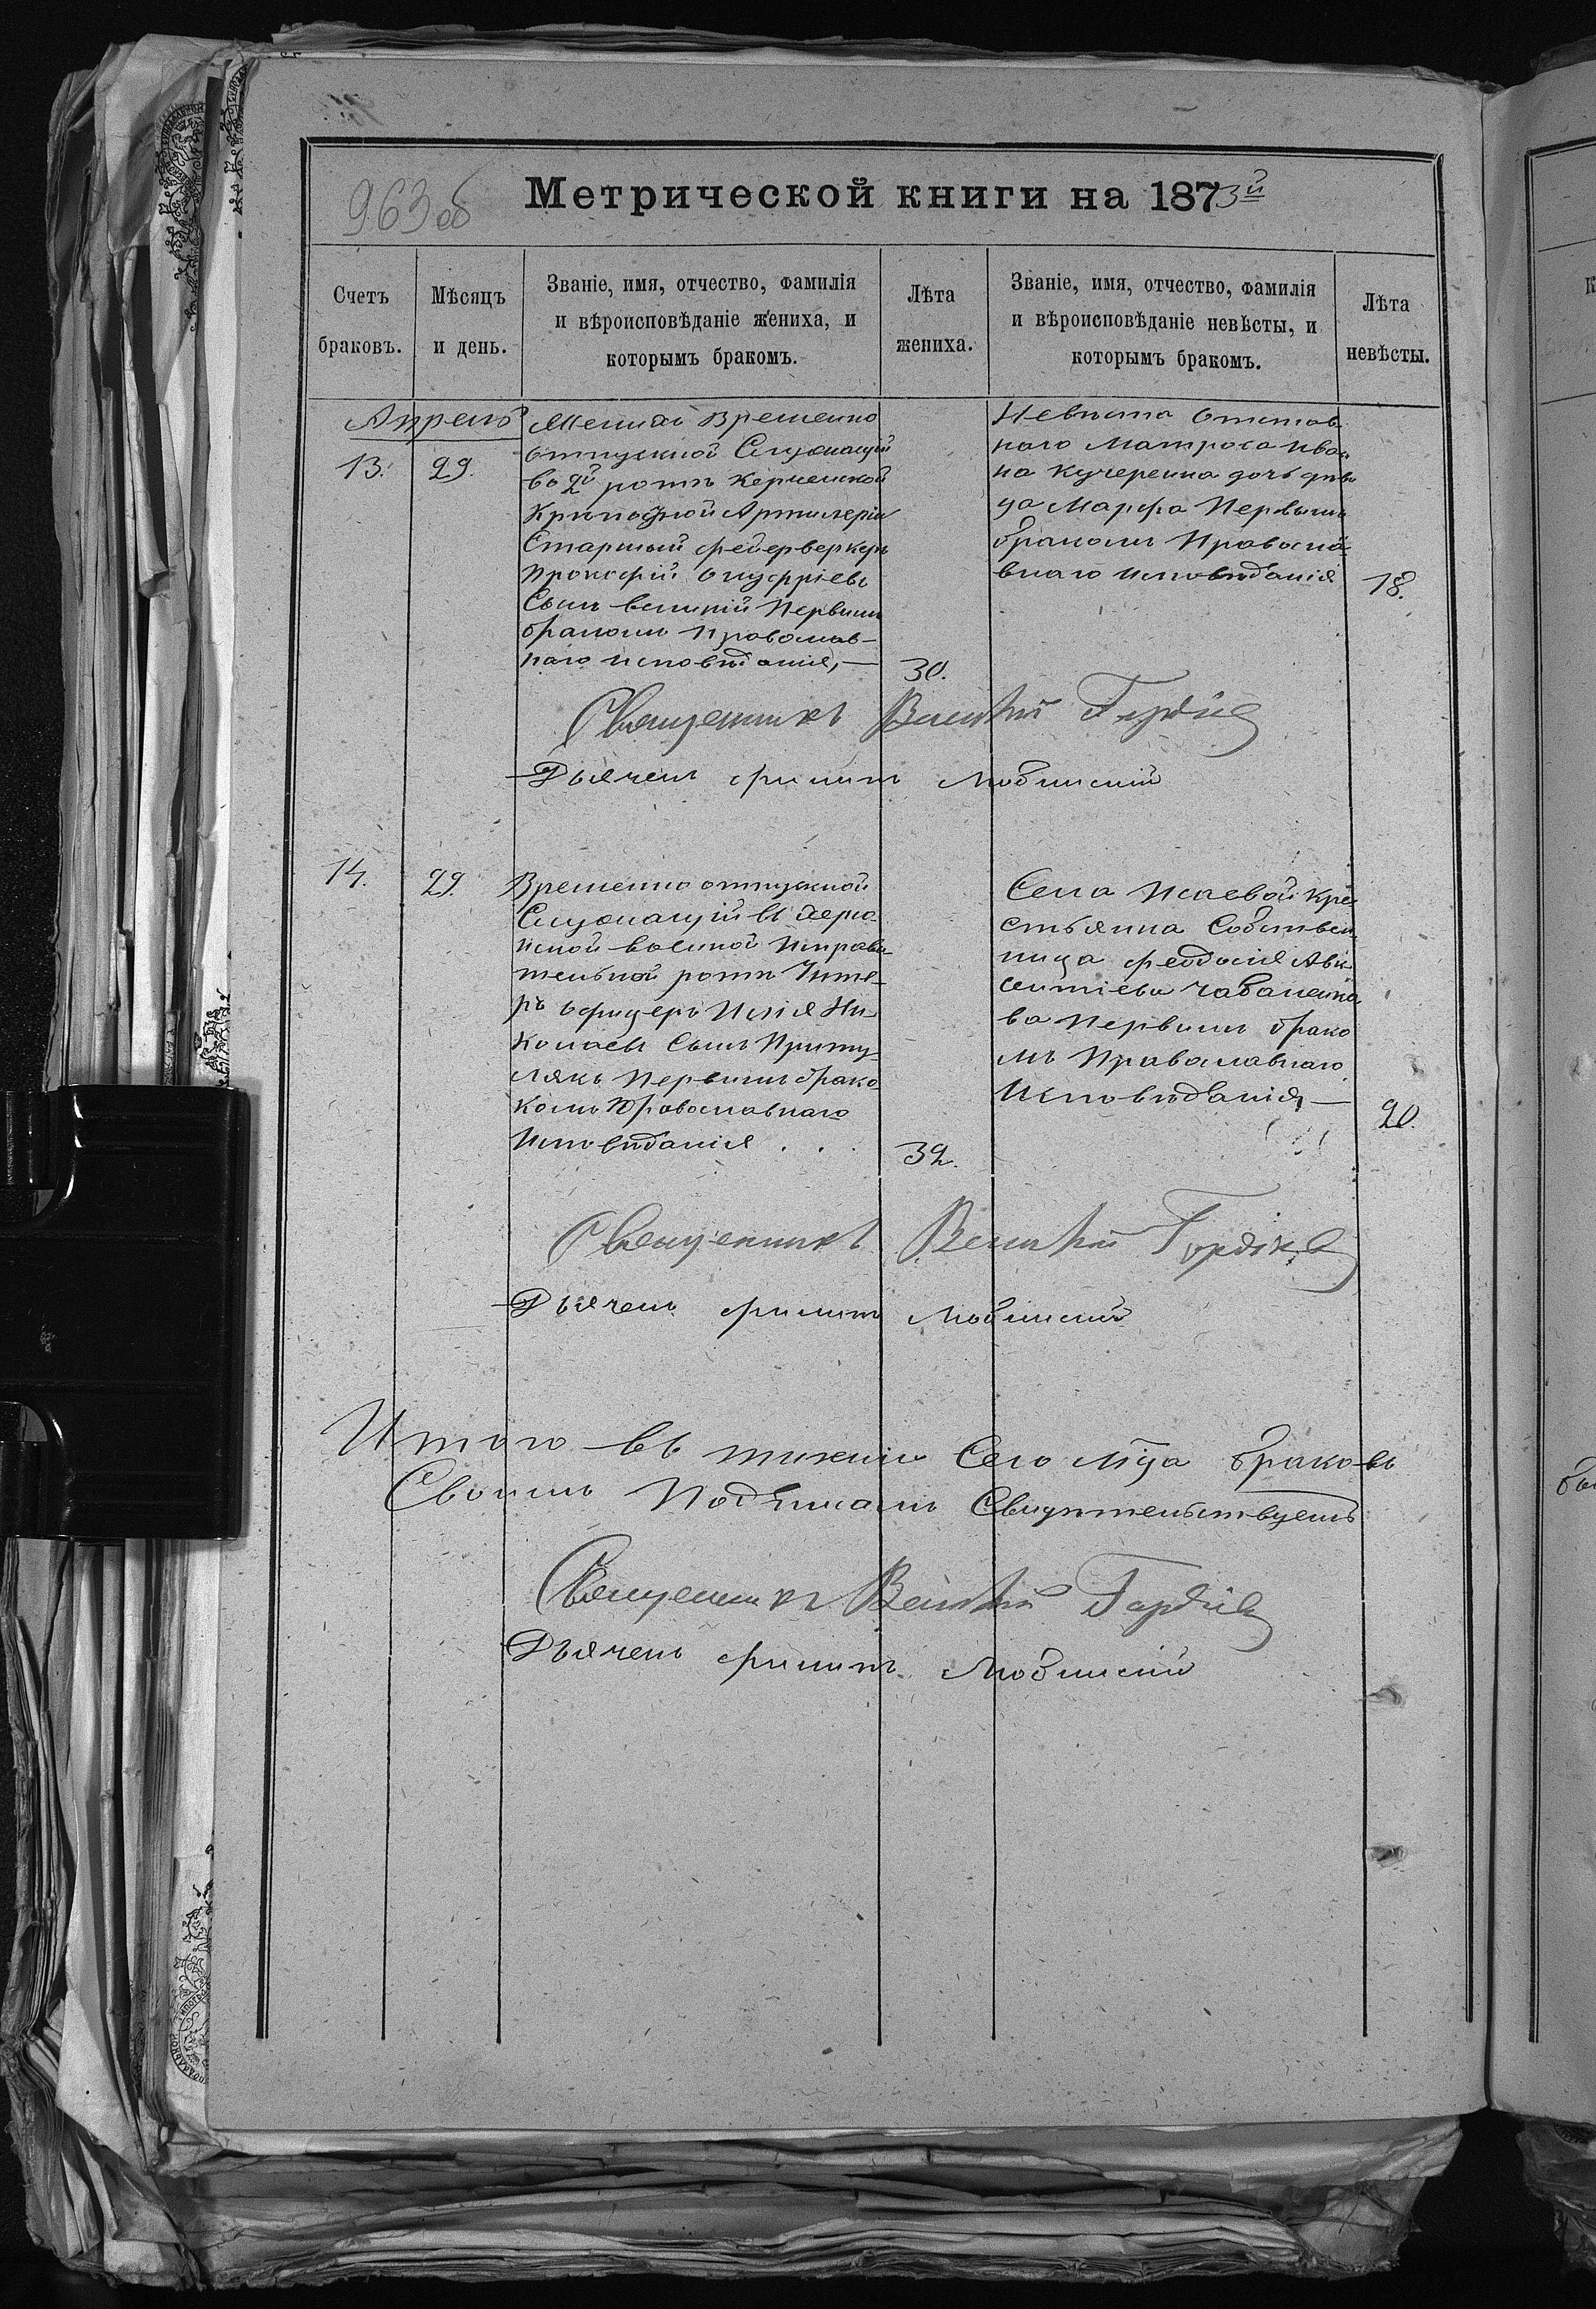 963 об
Метрической книги на 1873й
Счетъ браковъ.
Мѣсяцъ и день.
Званіе, имя, отчество, фамилія
и вѣроисповѣданіе жениха, и
которымъ бракомъ.
Лѣта жениха.
Званіе, имя, отчество, фамилія
и вѣроисповѣданіе невѣсты, и
которымъ бракомъ.
Лѣта невѣсты.
Апрель
13.
29.
Женихъ Временно
отпускной Служащій
во 2й ротѣ Керченской
Крѣпостной Артилеріи
Старшый фейерверкеръ
Прокофій Онуфріевъ
Сынъ Первымъ
бракомъ Православ-
наго исповѣданія,—
30.
Невѣста Отстав
наго Матроса Ива
на Кучеренка дочь дѣви
ца Марфа Первымъ
бракомъ Правосла
внаго исповѣданія
18.
Священникъ Гордіев
Дьячекъ Филипъ Любинский
14.
29.
Временно отпускной
Служащій въ Херсо
нской военной Исправи-
тельной ротѣ Унте-
ръ офицеръ Илія Ни-
колаевъ Сынъ Приту
лякъ Первымъ брако
комъ Православнаго
Исповѣданія . . .
32.
Села Исаевой Кре
стьянка Собствен
ница Феодосія Авк
сентіева Чабаненко
ва Первымъ брако
мъ Православнаго
Исповѣданія,—
20.
Священникъ Гордіев
Дьячекъ Филипъ Любинский
Итого въ теченіи Сего мца браковъ
Своимъ Подписомъ Свидѣтельствуемъ
Священникъ Гордіев
Дьячекъ Филипъ Любинский